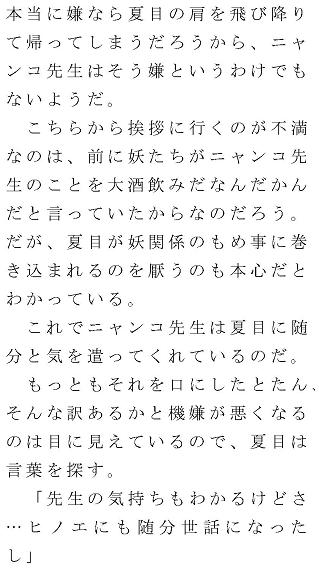 本当に嫌なら夏目の肩を飛び降り
て帰ってしまうだろうから、ニャ
ンコ先生はそう嫌というわけでも
ないようだ。
　こちらから挨拶に行くのが不満
なのは、前に妖たちがニャンコ先
生のことを大酒飲みだなんだかん
だと言っていたからなのだろう。
だが、夏目が妖関係のもめ事に巻
き込まれるのを厭うのも本心だと
わかっている。
　これでニャンコ先生は夏目に随
分と気を遣ってくれているのだ。
　もっともそれを口にしたとたん、
そんな訳あるかと機嫌が悪くなる
のは目に見えているので、夏目は
言葉を探す。
　「先生の気持ちもわかるけどさ
…ヒノエにも随分世話になった
し」